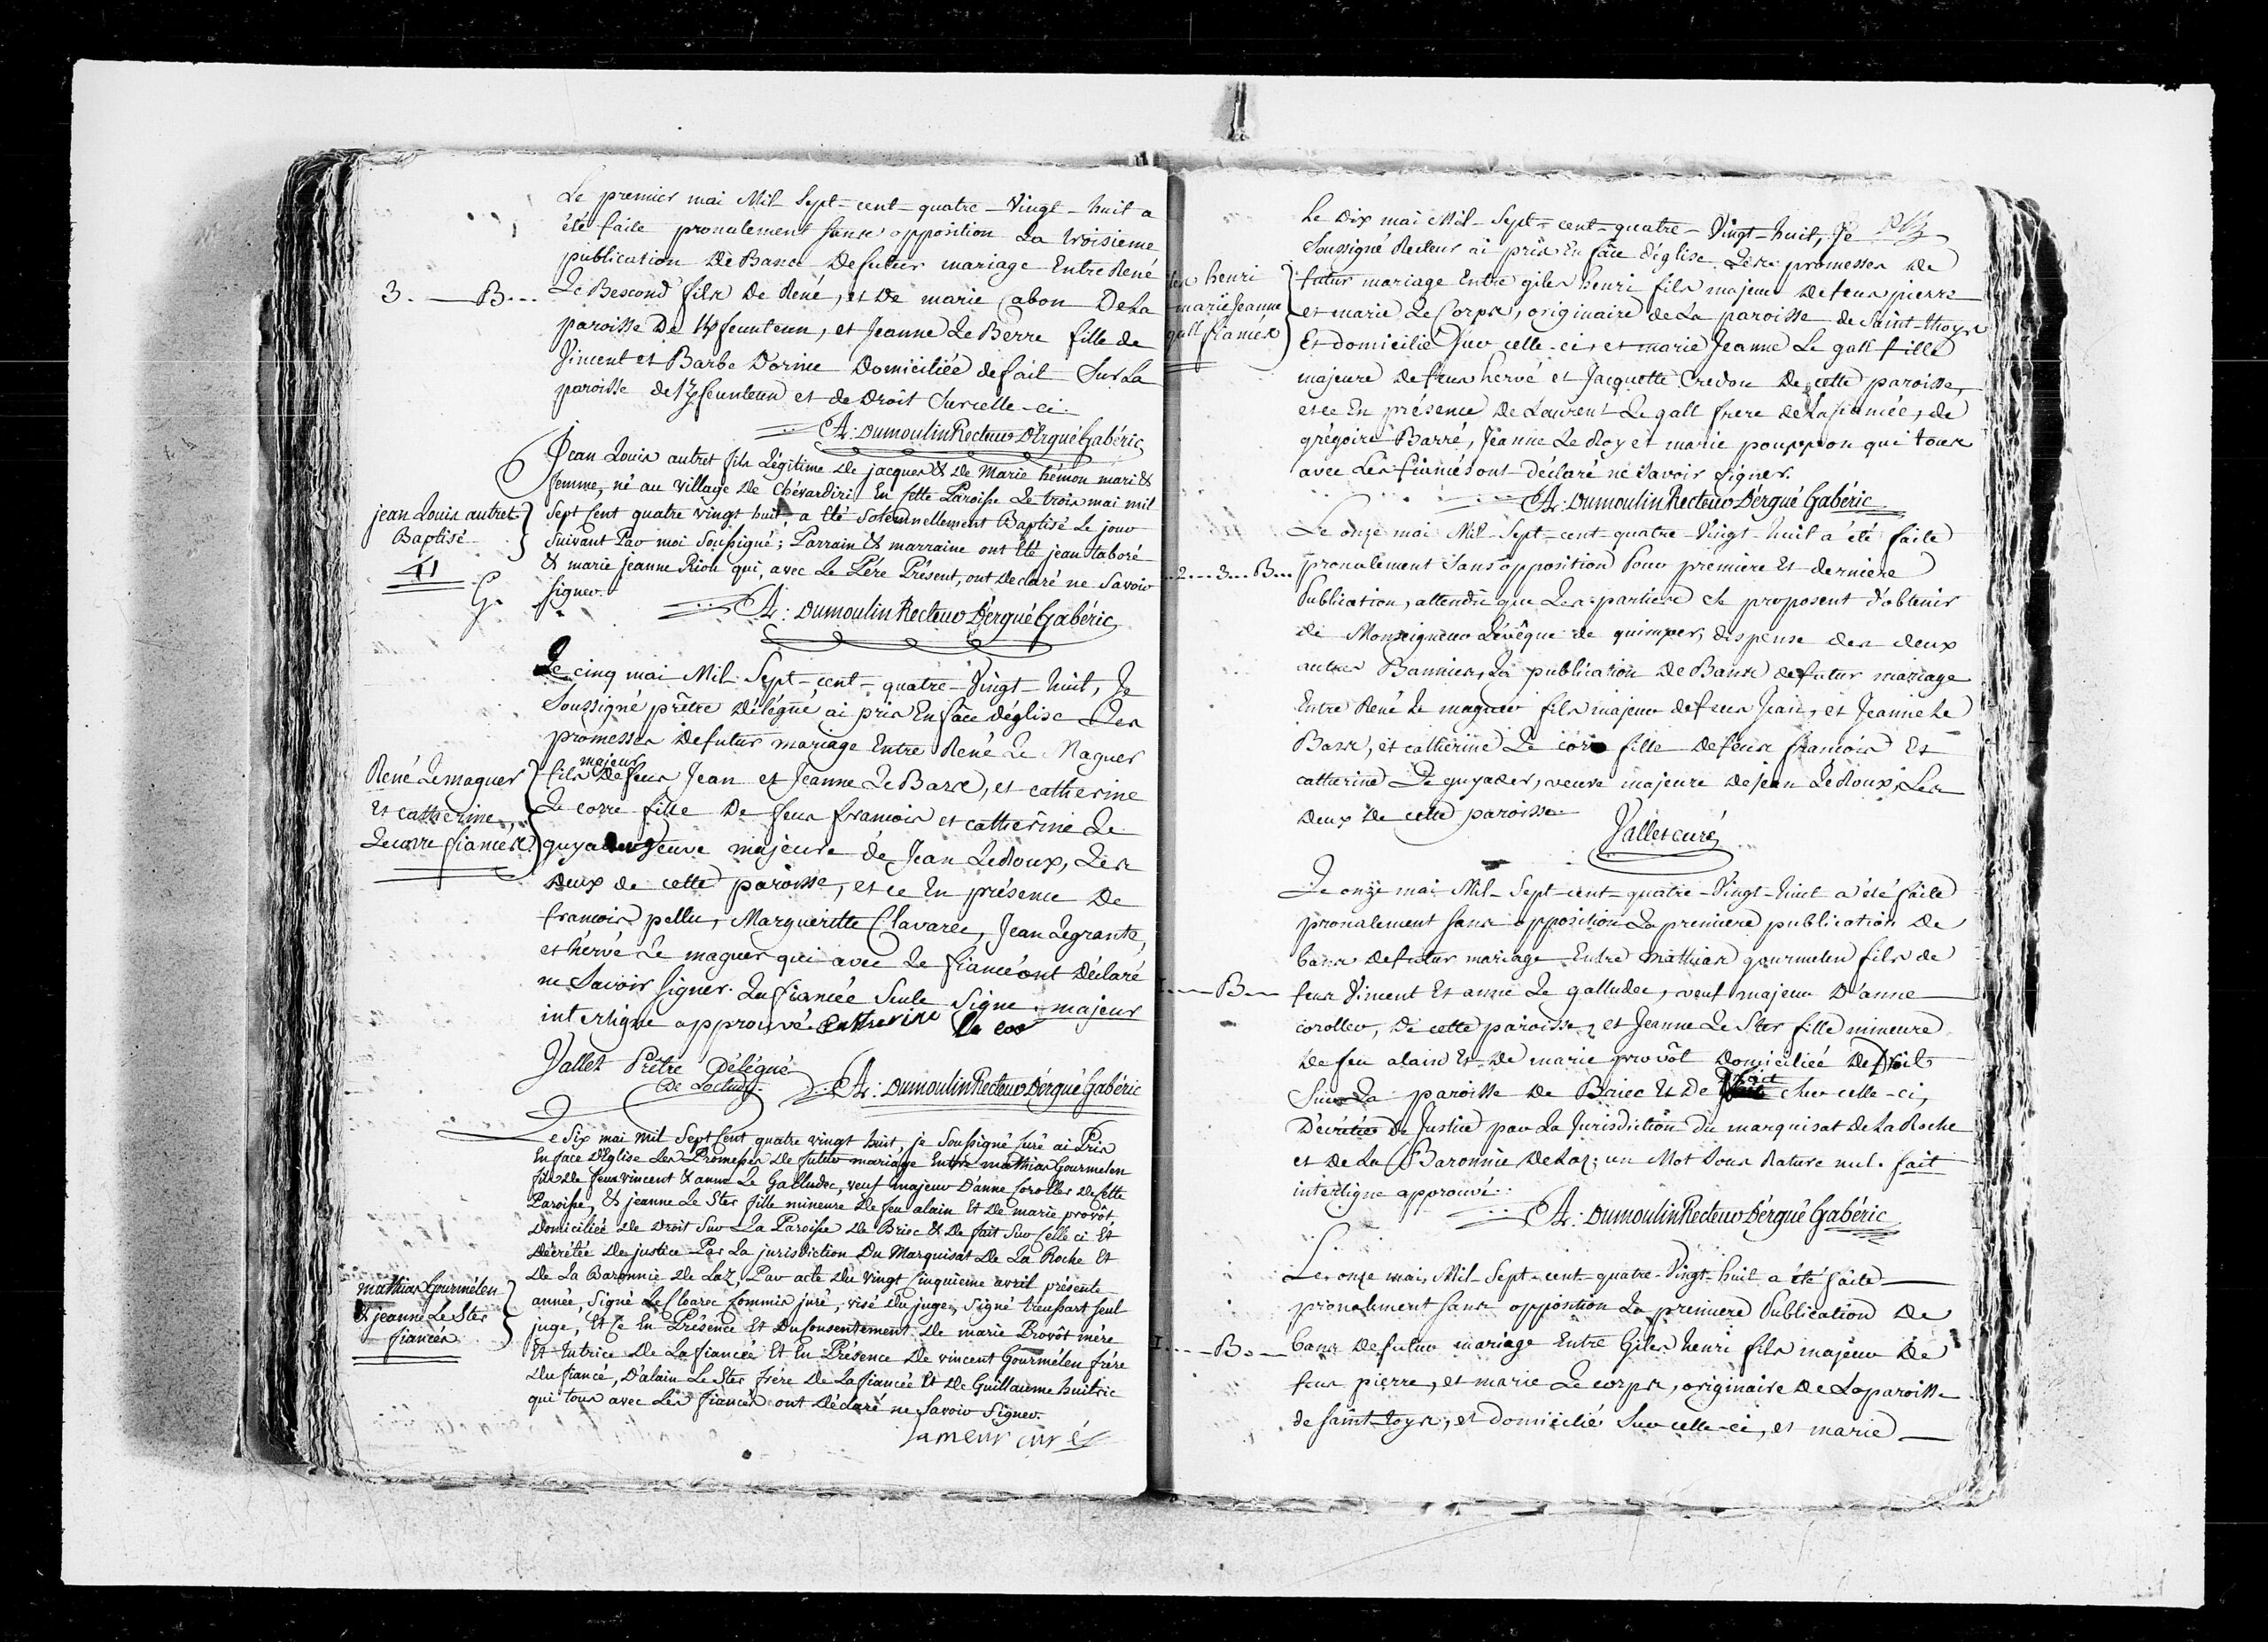 Le premier mai Mil Sept-cent-quatre-Vingt-huit a
été faite pronalement sans opposition La troisieme
publication De Bans De futur mariage Entre René
3. B...
Le Bescond fils De René, et De marie Cabon De La
paroisse De feunteun, et Jeanne Le Berre fille de
Vincent et Barbe Dornic Domiciliée de fait Sur La
paroisse de feunteun et de Droit Sur celle-ci.
A: Dumoulin Recteur D'Ergué Gabéric
Jean Louis autret fils Légitime De jacques & De Marie hémon mari &
femme, né au village De Chévardiri En Cette Paroisse Le trois mai mil
jean Louis autret
Baptisé
41
G.
Sept Cent quatre vingt huit, a Eté Solemnellement Baptisé Le jour
Suivant Par moi Soussigné; Parrain & marraine ont Eté jean taboré
& marie jeanne Riou qui, avec Le Pére Présent, ont Declaré ne Savoir
Signer.
A: Dumoulin Recteur D'ergué Gabéric
Le cinq mai Mil Sept-cent-quatre-Vingt-huit, Je
Soussigné prêtre Délégué ai pris En face d'église Les
promesses De futur mariage Entre René Le Maguer
majeur
René Lemaguer
Et catherine,
Lecorre fiancés
fils De feus Jean et Jeanne Le Bars, et catherine
Le corre fille De feus francois et catherine Le
guyader Veuve majeure de Jean Ledoux, Les
Deux de cette paroisse, et ce En présence De
francois pellu, Margueritte Clavarec, Jean Legrante,
et hervé Le maguer qui avec Le fiancé ont Déclaré
ne Savoir Signer. La fiancée Seule Signe. majeur
interligne approuvé. Catherine le cor
Vallet Prêtre Délégué
De Loctudy
A: Dumoulin Recteur D'ergué Gabéric
Le Six mai Mil Sept Cent quatre vingt huit, je Soussigné Curé ai Pris
En face D'Eglise Les Promesses De futur mariage Entre mathias Gourmelen
fils De feus vincent & anne Le Galludec, veuf majeur D'anne Coroller De Cette
Paroisse, Et jeanne Le Ster fille mineure De feu alain Et De marie provôt
Domiciliée De Droit Sur La Paroisse De Briec & De fait Sur Celle ci Et
Décrétée De justice Par La jurisdiction Du Marquisat De La Roche Et
De La Baronnie De Laz, Par acte Du vingt Cinquieme avril présente
mathias Gourmélen
& jeanne Le Ster
fiancés
année, Signé Le Cloarec Commis juré, visé Du juge, Signé treussart Seul
juge, Et Ce En Présence Et Du Consentement De marie Provôt mére
Et tutrice De La fiancée Et En Présence De vincent Gourmélen frére
Du fiancé, D'alain Le Ster frére De La fiancée Et De Guillaume huitric
qui tous avec Les fiancés ont Déclaré ne Savoir Signer.
Lameur curé
Le Dix mai Mil-Sept-cent-quatre-Vingt-huit, Je
Soussigné Recteur ai pris En face d'église Les promesses De
henri
marie Jeanne
gall fiancés
futur mariage Entre giles henri fils majeur De feus pierre
et marie Le Corps, originaire de La paroisse de Saint-thoys
Et domicilié Sur celle-ci, et marie Jeanne Le gall fille
majeure De feus hervé et Jacquette Credou De cette paroisse,
et ce En présence De Laurent Le gall frere De La fiancée, de
grégoire Barré, Jeanne Le Roy et marie poupon qui tous
avec Les fiancés ont déclaré ne Savoir Signer.
A: Dumoulin Recteur D'ergué Gabéric
Le onze mai Mil-Sept-cent-quatre-Vingt-huit a été faite
2...3...B...
pronalement Sans opposition Pour premiere Et derniere
Publication, attendu que Les parties Se proposent d'obtenir
de Monseigneur L'évêque de quimper, dispense des deux
autres Bannies, La publication De Bans De futur mariage
Entre René Le maguer fils majeur de feus Jean, et Jeanne Le
Bars, et catherine Le corre fille De feus francois Et
catherine Le guyader, veuve majeure De jean Ledoux, Les
Deux De cette paroisse
Vallet curé
Le onze mai Mil-Sept-cent-quatre-Vingt-huit a été faite
pronalement sans opposition La premiere publication De
bans De futur mariage Entre Mathias gourmelen fils de
1....B...
feus Vincent Et anne Le galludec, veuf majeur D'anne
coroller, De cette paroisse, et Jeanne Le Ster fille mineure
De feu alain Et De marie provôt Domiciliée De Droit
fait
Sur La paroisse De Briec Et De Sur celle-ci,
Décrétée De Justice par La Jurisdiction Du marquisat De La Roche
et De La Baronnie De Laz; un Mot Sous Rature nul. fait
interligne approuvé.
A: Dumoulin Recteur D'ergué Gabéric
Le onze mai, Mil-Sept-cent-quatre-Vingt-huit a été faite
pronalement sans opposition La premiere Publication De
1....B...
bans De futur mariage Entre Giles henri fils majeur De
feus pierre, et marie Le corps, originaire De La paroisse
de Saint-toys, et domicilié Sur celle-ci, et marie